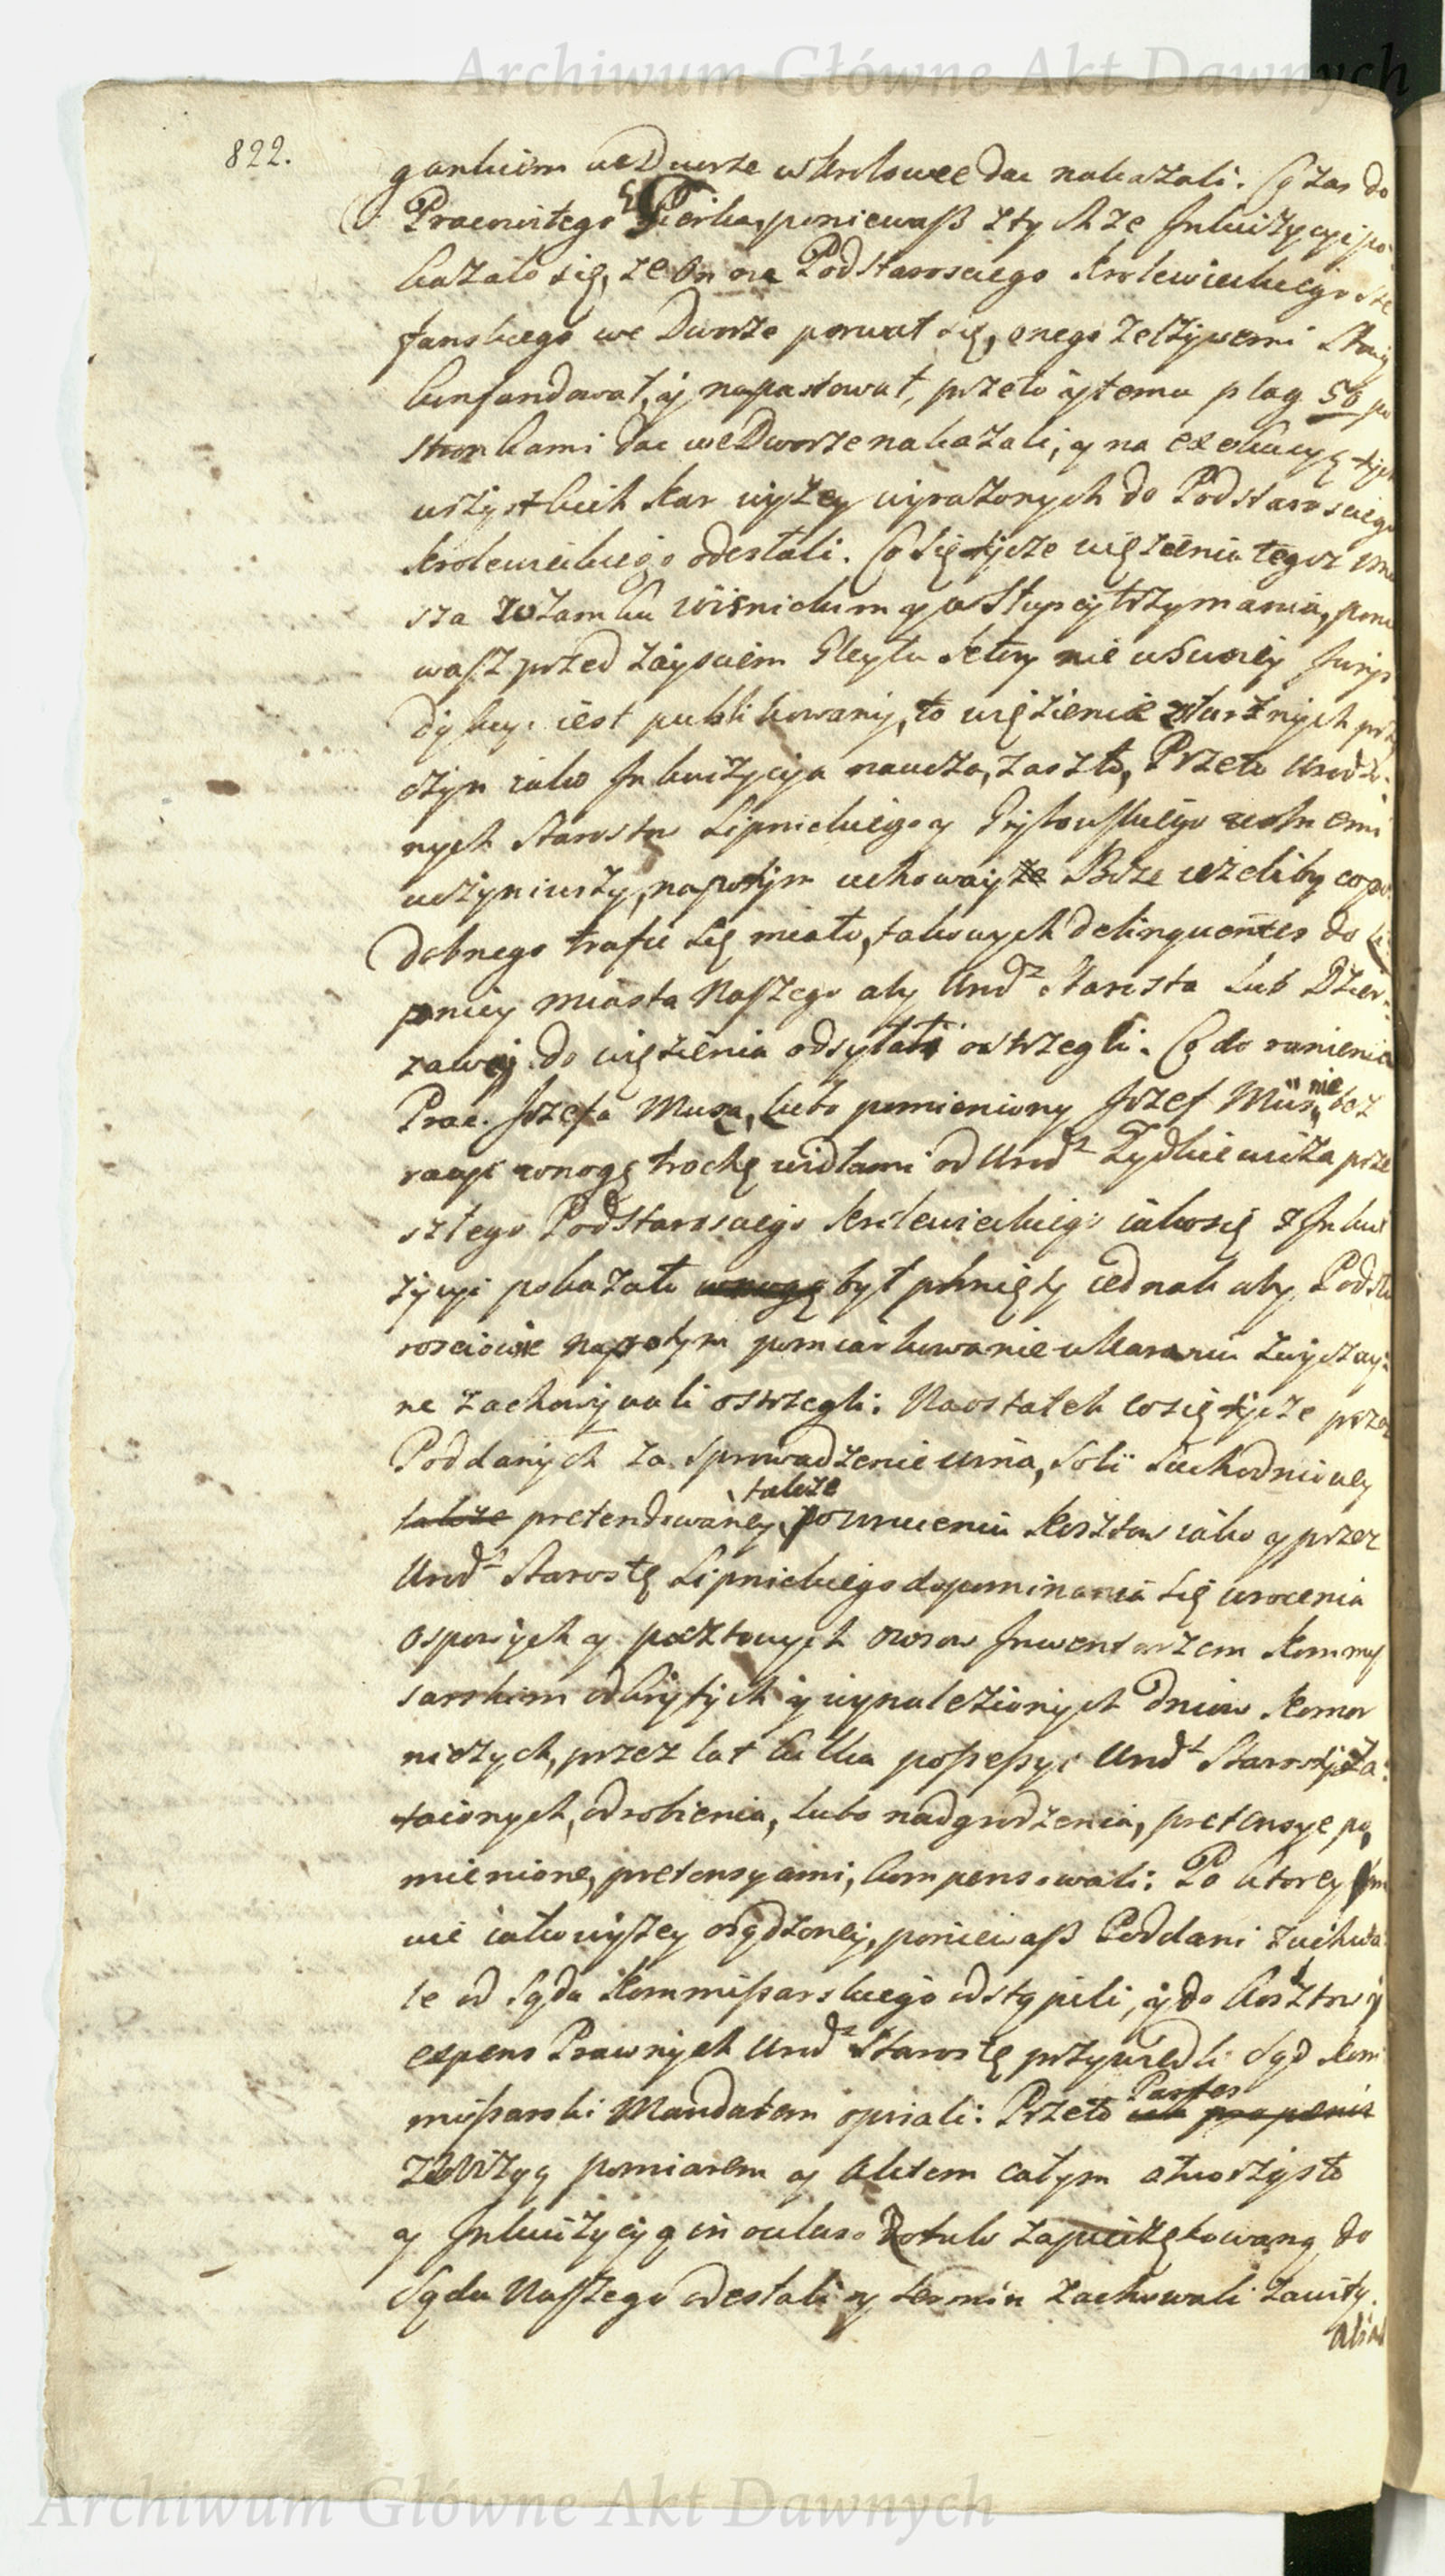 Archiwum Główne Akt Dawnych
822.
we Dworze w Krolowce dac nakazali. Co zas do
Pracowitego poniewaß z tychze Inkwizycyi po-
kazało się, ze on na Podstarosciego Krolewieckiego Ste
fanskiego we Dworze porwał się, onego zelzywemi Słowy
konfundował, y napastował, przeto y temu plag 50 po
stronkami dac we Dworze nakazali, y na exekucyę tych
wszystkich kar wyzey wyrazonych do Podstarosciego
Krolewieckiego odesłali. Co się tycze więzienia tegoz
sza w Zamku Wisnickim y w Słupcy trzymania, ponie
waſz przed zayściem Gleytu ktory nie w Swoiey Jurys-
dykcyi iest publikowany, to więzienie z słusznych przy
czyn iako Inkwizycya naucza, zaszło, Przeto Urodzo-
nych Starostę Lipnickiego y wolnemi
uczyniwszy, napotym uchoway Boze iezeliby co po-
dobnego trafic się miało, takowych delinquentes do Li
pnicy Miasta Naſzego aby Urodz Starosta lub Dzier-
zawcy do więzienia odsyłali ostrzegli. Co do ranienia
Prac. Jozefa Musa, lubo pomieniony Jozef Mus nie bez
racyi w nogę trochę widłami od Urodz Zydkiewicza prze
szłego Podstarosciego Krolewieckiego iako się z Inkwi
zycyi pokazało był pchnięty iednak aby Podsta
rosciowie napotym pomiarkowanie w karaniu zwyczay-
ne zachowywali ostrzegli. Naostatek co się tycze przez
Poddanych za sprowadzenie wina, Soli Suchedniowey
także
także pretendowaney powrucenia kosztow iako y przez
Urodz Starostę Lipnickiego dopominania się wrocenia
osposych y pocztowych owsow Inwentarzem Kommiſ
sarskim odkrytych y wynalezionych Dniow Komor
niczych, przez lat kilka poßeßyi Urodz Starosty Za-
taionych, odrobienia, lubo nadgrodzenia, pretensye po
mienione, pretensyami, kompensowali. Po ktorey
wie iako wyſzey osądzoney, poniewaß Poddani zuchwa
le od Sądu Kommißarskiego odstąpili, y do Kosztow y
expens Prawnych Urodz Starostę przywiedli Sąd Kom
mißarski Mandatem opiali: Przeto Partes
Wizyą pomiarem y Aktem całym otworzysto
y Inkwizycyą in oclaso Rotulo zapieczętowaną do
Sądu Naſzego odesłali y termin zachowali zawity.
Alias
Archiwum Główne Akt Dawnych